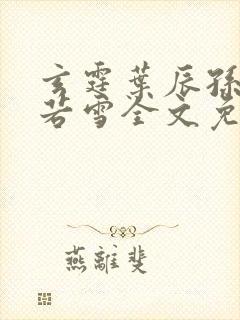 玄霆叶辰孙
若雪全文免
燕離斐